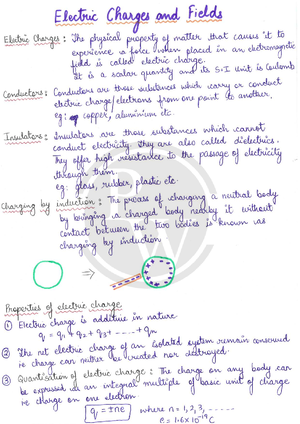 Electric Charges and Fields
Electric Charges : The physical property of matter that causes it to
experience a force when placed in an electromagnetic
field is called electric charge.
It is a scalar quantity and its S.I unit is Coulomb
Conductors : Conductors are those substances which carry or conduct
electric charge/electrons from one point to another.
eg: copper, aluminium etc.
Insulators : Insulators are those substances which cannot
conduct electricity. They are also called dielectrics.
They offer high resistance to the passage of electricity
through them.
eg: glass, rubber, plastic etc
Charging by induction : The process of charging a neutral body
by bringing a charged body nearby it without
contact between the two bodies is known as
charging by induction
Properties of electric charge
① Electric charge is additive in nature
q = q₁ + q₂ + q₃ + ...... + qn
② The net electric charge of an isolated system remain conserved
ie charge can neither be created nor destroyed.
③ Quantisation of electric charge : The charge on any body can
be expressed as an integral multiple of basic unit of charge
ie charge on one electron
q = ±ne where n = 1, 2, 3, ......
e = 1.6 x 10⁻¹⁹ C